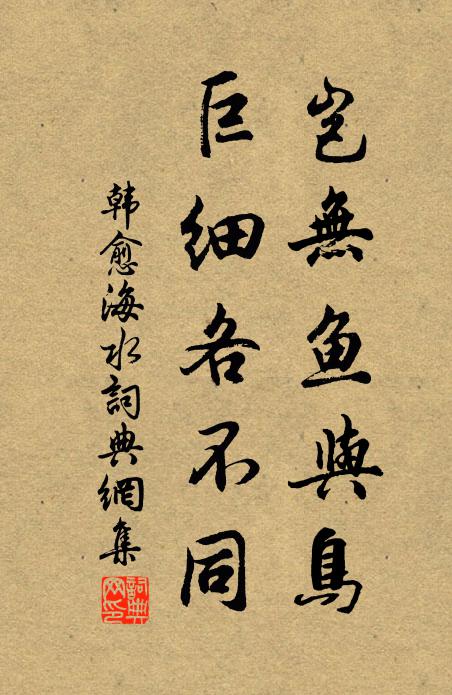 岂無鱼與鳥
巨细各不同
韩愈海水詞典網集
詞典网印